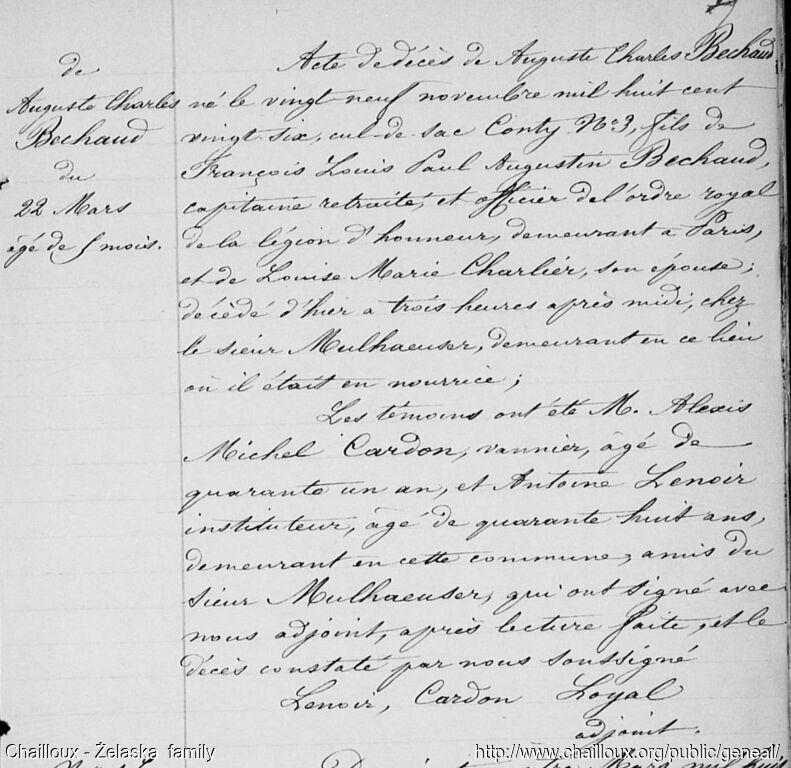 de
Auguste Charles
Bechaud
du
22 Mars
âgé de 5 mois.
Acte de décès de Auguste Charles Bechaud
né le vingt neuf novembre mil huit cent
vingt six, cul-de-sac Conty N.º 3, fils de
François Louis Paul Augustin Bechaud,
capitaine retraité, et officier de l'ordre royal
de la légion d'honneur, demeurant a Paris,
et de Louise Marie Charliér, son épouse ;
décédé d'hier a trois heures après midi, chez
le sieur Mulhaeuser, demeurant en ce lieu
où il était en nourrice ;
Les témoins ont été M. Alexis
Michel Cardon, vannier, âgé de
quarante un an, et Antoine Lenoir
instituteur, âgé de quarante huit ans,
demeurant en cette commune, amis du
sieur Mulhaeuser, qui ont signé avec
nous adjoint, après lecture faite, et le
décès constaté par nous soussigné
Lenoir, Cardon Loyal
adjoint.
Chailloux - Żelaska family
http://www.chailloux.org/public/geneal/
Mars mil huit